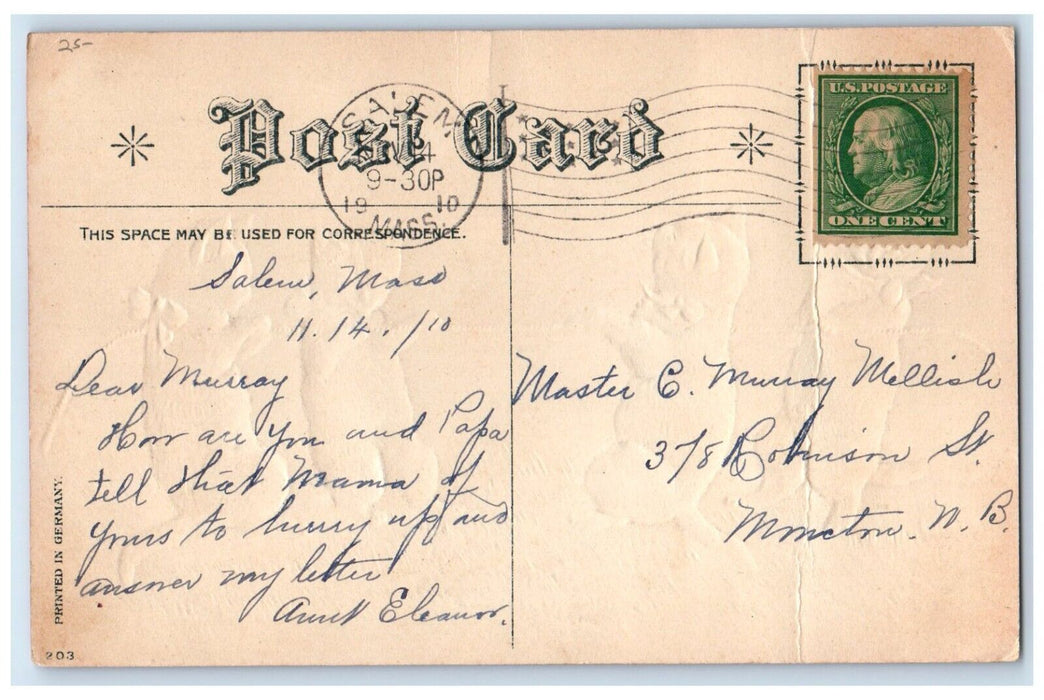 25-
Post Card
SALEM
NOV 14
9-30P
19 10
MASS.
U.S. POSTAGE
ONE CENT
THIS SPACE MAY BE USED FOR CORRESPONDENCE.
Salem, Mass
11.14./10
Dear Murray
How are you and Papa
tell that Mama of
yours to hurry up and
answer my letter
Aunt Eleanor.
Master C. Murray Mellish
378 Robinson St.
Moncton. N. B.
PRINTED IN GERMANY.
203